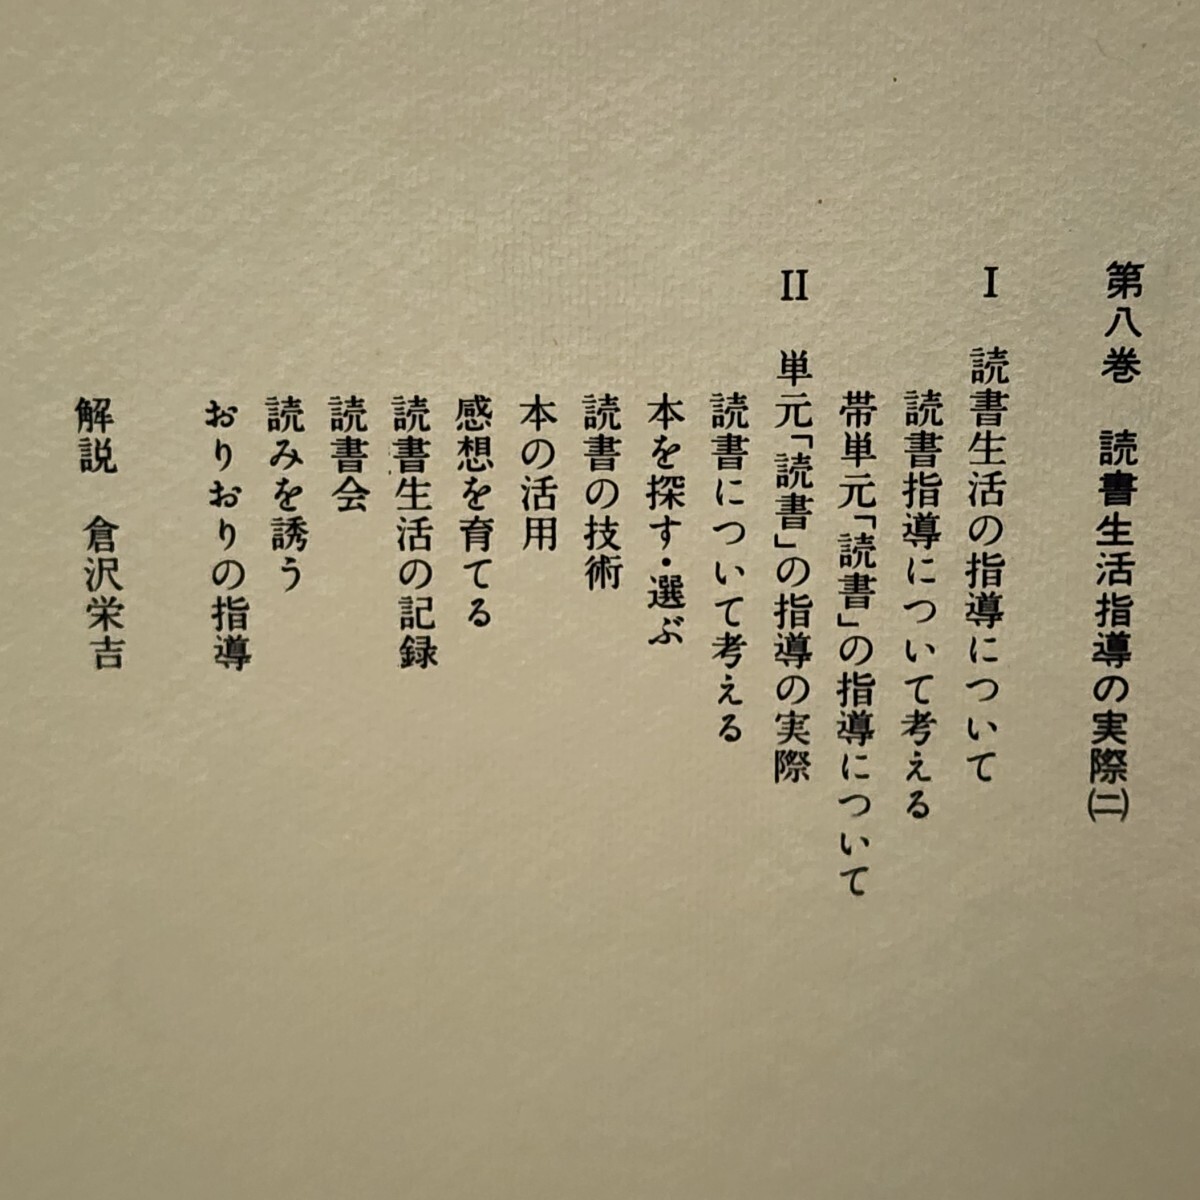 第八巻 読書生活指導の実際㈡
I 読書生活の指導について
読書指導について考える
帯単元「読書」の指導について
II 単元「読書」の指導の実際
読書について考える
本を探す・選ぶ
読書の技術
本の活用
感想を育てる
読書生活の記録
読書会
読みを誘う
おりおりの指導
解説 倉沢栄吉